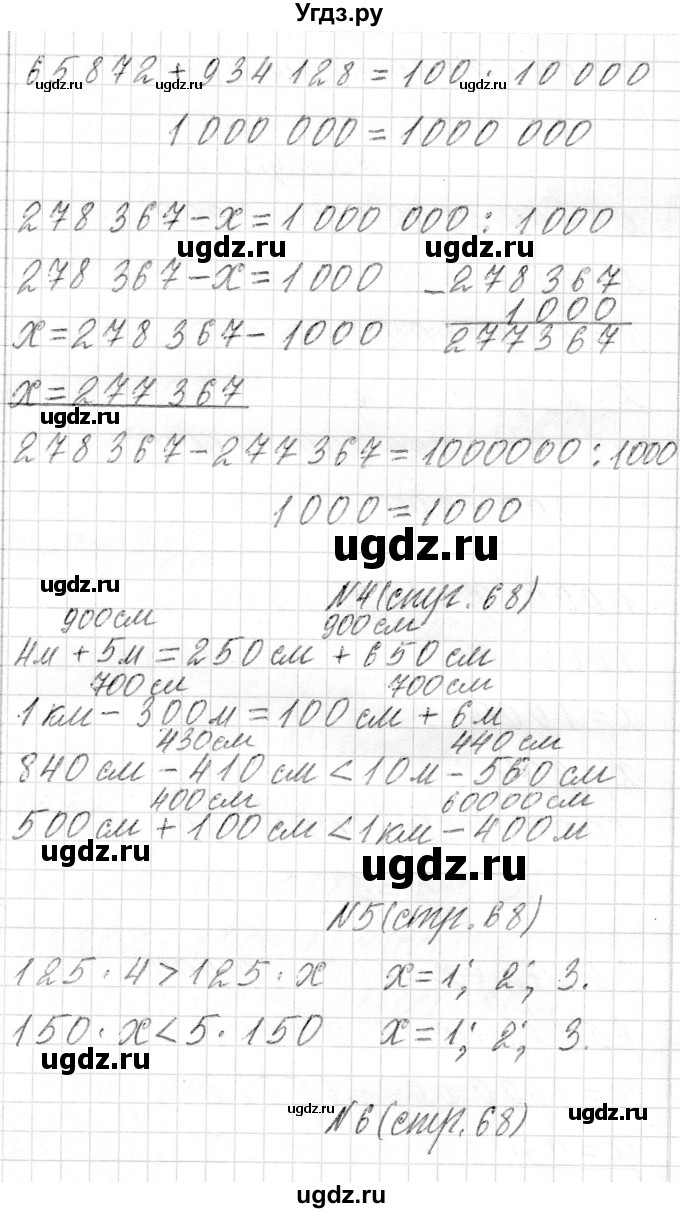 Угдз.ру
65 872 + 934 128 = 100 · 10 000
ugdz.ru ugdz.ru ugdz.ru ugdz.ru
1 000 000 = 1000 000
278 367 - x = 1 000 000 : 1000
ugdz.ru ugdz.ru
278 367 - x = 1000 - 278 367
1 000
x = 278 367 - 1000 277367
x = 277 367
ugdz.ru
278 367 - 277 367 = 1000000 : 1000
1000 = 1000
ugdz.ru
ugdz.ru №4 (стр. 68)
900 см 900 см
4м + 5м = 250 см + 650 см
700 см 700 см
1 км - 300 м = 100 см + 6 м
430 см 440 см
840 см - 410 см < 10 м - 560 см
400 см 60000 см
500 см + 100 см < 1 км - 400 м
ugdz.ru ugdz.ru
№5 (стр. 68)
125 · 4 > 125 · x x = 1; 2; 3.
150 · x < 5 · 150 x = 1; 2; 3.
ugdz.ru
ugdz.ru №6 (стр. 68) ugdz.ru
ugdz.ru